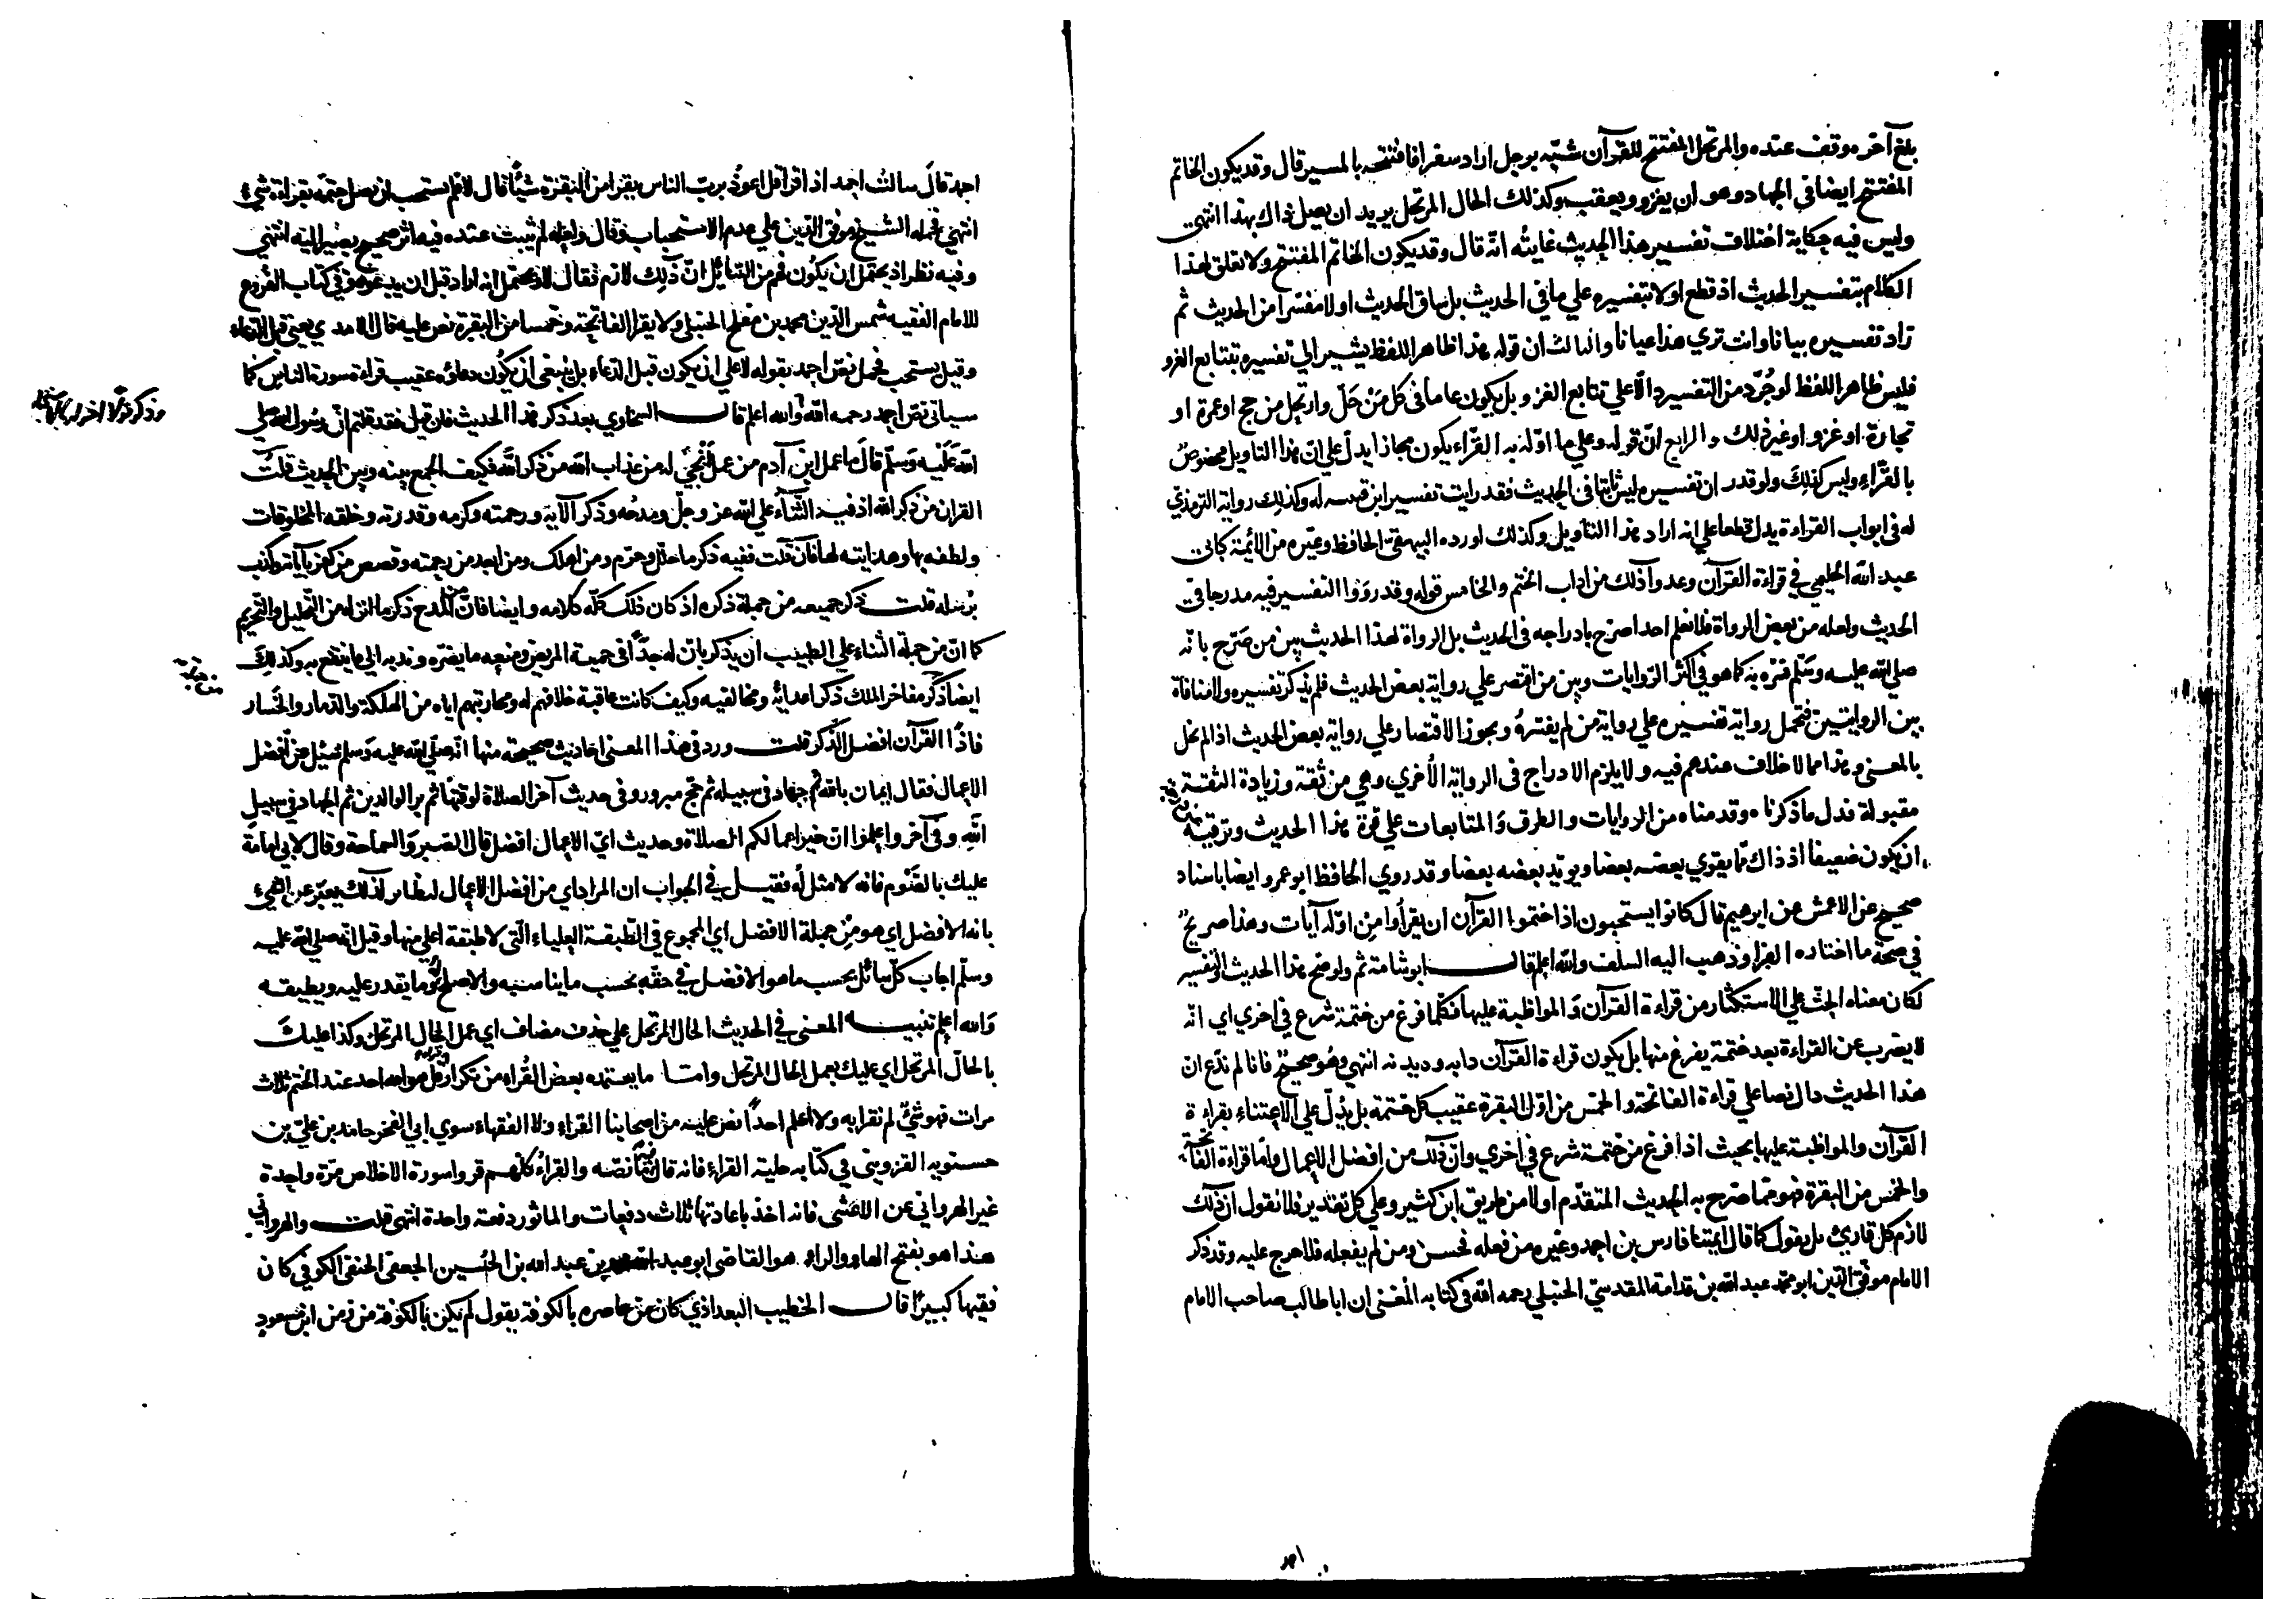 بلغ آخره وقف عنده والمرتحل المفتتح للقرآن شبّه برجل اراد سفرا فافتتحه بالمسير قال وقد يكون الخاتم
المفتتح ايضا في الجهاد وهو ان يغزو ويعقب وكذلك الحال المرتحل يريد ان يصل ذاك بهذا انتهى
وليس فيه حكاية اختلاف تفسير هذا الحديث غايته انه قال وقد يكون الخاتم المفتتح ولا تعلق لهذا
الكلام بتفسير الحديث اذ قطع اولا بتفسيره علي ما في الحديث بل ساق الحديث اولا مفسّرا من الحديث ثم
زاد تفسيره بيانا وانت تري هذا عيانا والثالث ان قوله هذا ظاهر اللفظ يشير الي تفسيره بتتابع الغزو
فليس ظاهر اللفظ لو جُرّد من التفسير دالّا علي تتابع الغزو بل يكون عاما في كل مَنْ حَلّ وارتحل من حج او عمرة او
تجارة او غزو او غير ذلك والرابع انّ قوله وعلي ما اوّله به القرّاء يكون مجازا يدلّ علي انّ هذا التاويل مخصوص
بالقرّاء وليس كذلك ولو قدر ان تفسيره ليس ثابتا في الحديث فقد رايت تفسير ابن قتيبه له وكذلك رواية الترمذيّ
له في ابواب القراءة يدل قطعا علي انه اراد هذا التاويل وكذلك اورده البيهقي الحافظ وغيره من الائمة كابي
عبد الله الحليمي في قراءة القرآن وعدوا ذلك من اداب الختم والخامس قوله وقد رووا التفسير فيه مدرجا في
الحديث ولعله من بعض الرواة فلا نعلم احدا صرّح بادراجه في الحديث بل الرواة لهذا الحديث بين من صرّح بانه
صلي الله عليه وسلّم فسّره به كما هو في اكثر الروايات وبين من اقتصر علي رواية بعض الحديث فلم يذكر تفسيره ولا منافاة
بين الروايتين فتحمل رواية تفسيره علي رواية من لم يفسّرهُ ويجوز الاقتصار علي رواية بعض الحديث اذا لم يخل
بالمعنى وهذا مما لا خلاف عندهم فيه ولا يلزم الادراج في الرواية الأخري وهي من ثقة وزيادة الثقة
مقبولة فدل ما ذكرناه وقدمناه من الروايات والطرق والمتابعات علي قوة هذا الحديث وترقيه
ان يكون ضعيفا اذ ذاك مما يقوي بعضه بعضا ويويد بعضه بعضا وقد روي الحافظ ابو عمرو ايضا باسناد
صحيح عن الاعمش عن ابرهيم قال كانوا يستحبون اذا ختموا القرآن ان يقرأوا من اوّله آيات وهذا صريحٌ
في صحة ما اختاره القراء وذهب اليه السلف والله اعلم قال ابو شامة ثم ولو صح هذا الحديث والتفسير
لكان معناه الحثّ علي الاستكثار من قراءة القرآن والمواظبة عليها فكلما فرغ من ختمة شرع في اخري اي انه
لا يضرب عن القراءة بعد ختمة يفرغ منها بل يكون قراءة القرآن دابه وديدنه انتهي وهُو صحيحٌ فانا لم ندّع ان
هذا الحديث دال نصا علي قراءة الفاتحة والخمس من اوّل البقرة عقيب كل ختمة بل يُدلّ علي الاعتناء بقراءة
القرآن والمواظبة عليها بحيث اذا فرغ من ختمة شرع في اخري وانّ ذلك من افضل الاعمال وامّا قراءة الفاتحة
والخمس من البقرة فهو ممّا صرّح به الحديث المتقدّم اولا من طريق ابن كثير وعلي كل تقدير فلا نقول ان ذلك
لازم كل قارئ بل يقول كما قال ايمتنا فارس بن احمد وغيره من فعله فحسن ومن لم يفعله فلا حرج عليه وقد ذكر
الامام موفّق الدّين ابو محمّد عبد الله بن قدامة المقدسيّ الحنبلي رحمه الله في كتابه المُغني ان اباطالب صاحب الامام
احمد
احمد قالَ سالت احمد اذا قرا قل اعوذ برب الناس يقرا من البقرة شيئًا قال لا فلم يستحب ان يصل ختمه بقراءة شئ
انتهي فحمله الشيخ موفق الدّين علي عدم الاستحباب وقال ولعله لم يثبت عنده فيه اثر صحيح يصير اليه انتهي
وفيه نظر اذ يحتمل ان يكون فهم من السّائل انّ ذلك لازم فقال لا ويحتمل انه اراد قبل ان يدعو وفي كتاب الفروع
للامام الفقيه شمس الدّين محمد بن مفلح الحنبلي ولا يقرا الفاتحة وخمسا من البقرة نص عليه قال الامدي يعني قبل الدّعاء
وقيل يستحب فحمل نصّ احمد بقوله لا علي ان يكون قبل الدّعاء بل ينبغي ان يكُون دعاؤه عقيب قراءة سورة الناس كما
سياتي نصّ احمد رحمه الله والله اعلم قال السخاوي بعد ذكر هذا الحديث فان قيل فقد قلتم انّ رسُول الله صلي
الله عَلَيْه وَسلّم قَال مَا عمل ابن آدم من عمل اَنْجى له من عذاب الله من ذكر الله فكيف الجمع بينه وبين الحديث قلتُ
القران من ذكر الله اذ فيه الثّناء علي الله عز وجلّ ومدحُه وذكر آلائه ورحمته وكرمه وقدرته وخلقه المخلوقات
ولطفه بها وهدايته لها فان قلت ففيه ذكر ما حلّل وحرّم ومن اهلك ومن ابعد من رحمته وقصص من كفر بآياته وكذب
برسله قلت ذكر جميعه من جملة ذكره اذ كان ذلك كلّه كلامه وايضا فانّ من المدح ذكر ما انزله من التّحليل والتّحريم
كما انّ من جملة الثناء علي الطبيب ان يذكر بانّ له جدًّا في حمية المريض ومنعه ما يضره وندبه الي ما ينتفع به وكذلك
ايضا ذكرُ مفاخر الملك ذكر اعدائه ومخالفيه وكيف كانت عاقبة خلافهم له ومحاربتهم اياه من الهلكة والدّمار والخسَار
فاذًا القرآن افضل الذّكر قلت ورد في هذا المعنى احاديث صحيحة منها انّه صلّي الله عليه وَسلم سُئِل عن افضل
الاعمال فقال ايمان بالله ثم جهاد في سبيله ثم حج مبرور وفي حديث آخر الصلاة لوقتها ثم بر الوالدين ثم الجهاد في سبيل
الله وفي آخر واعلموا ان خير اعمالكم الصلاة وحديث ايّ الاعمال افضل قال الصّبر والسماحة وقال لابي امامة
عليك بالصّوم فانه لا مثل له فقيل في الجواب ان المراد اي من افضل الاعمال لنظاير لذلك يعبّر عن الشيء
بانه الافضل اي هو من جملة الافضل أي المجموع في الطّبقة العلياء الّتي لا طبقة اعلي منها وقيل انّه صلي الله عليه
وسلّم اجاب كلّ سائل بحسب ما هو الافضل في حقّه بحسب ما يناسبه والاصلح له وما يقدر عليه ويطيقه
وَالله اعلم تنبيه المعنى في الحديث الحال المرتحل علي حذف مضاف اي عمل الحال المرتحل وكذا عليك
بالحالّ المرتحل اي عليك بعمل الحال المرتحل وامّا ما يعتمده بعض القُراء من تكرار قراءة قل هو الله احد عند الختم ثلاث
مرات فهو شئٌ لم نقرا به ولا اعلم احدًا نص عليه من اصحابنا القراء ولا الفقهاء سوي ابي الفخر حامد بن عليّ بن
حسنويه القزويني في كتابه حلية القراء فانه قال فيه ما نصّه والقراءُ كلّهم قروا سورة الاخلاص مرّة واحدة
غير الهرواني عن الاعشى فانه اخذ باعادتها ثلاث دفعات والماثور دفعة واحدة انتهى قلت والهرواني
هذا هو بفتح الهاء والراء هو القاضي ابو عبد الله محمد بن عبد الله بن الحُسين الجعفي الحنفي الكوفي كان
فقيها كبيرًا قال الخطيب البغداذي كان من عاصره بالكوفة يقول لم يكن بالكوفة من زمن ابن مسعود